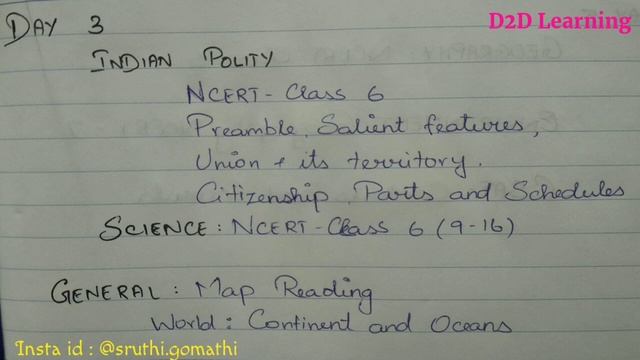 DAY 3
D2D Learning
INDIAN POLITY
NCERT - Class 6
Preamble, Salient features,
Union & its territory.
Citizenship, Parts and Schedules
SCIENCE : NCERT - Class 6 (9-16)
GENERAL : Map Reading
World : Continent and Oceans
Insta id : @sruthi.gomathi